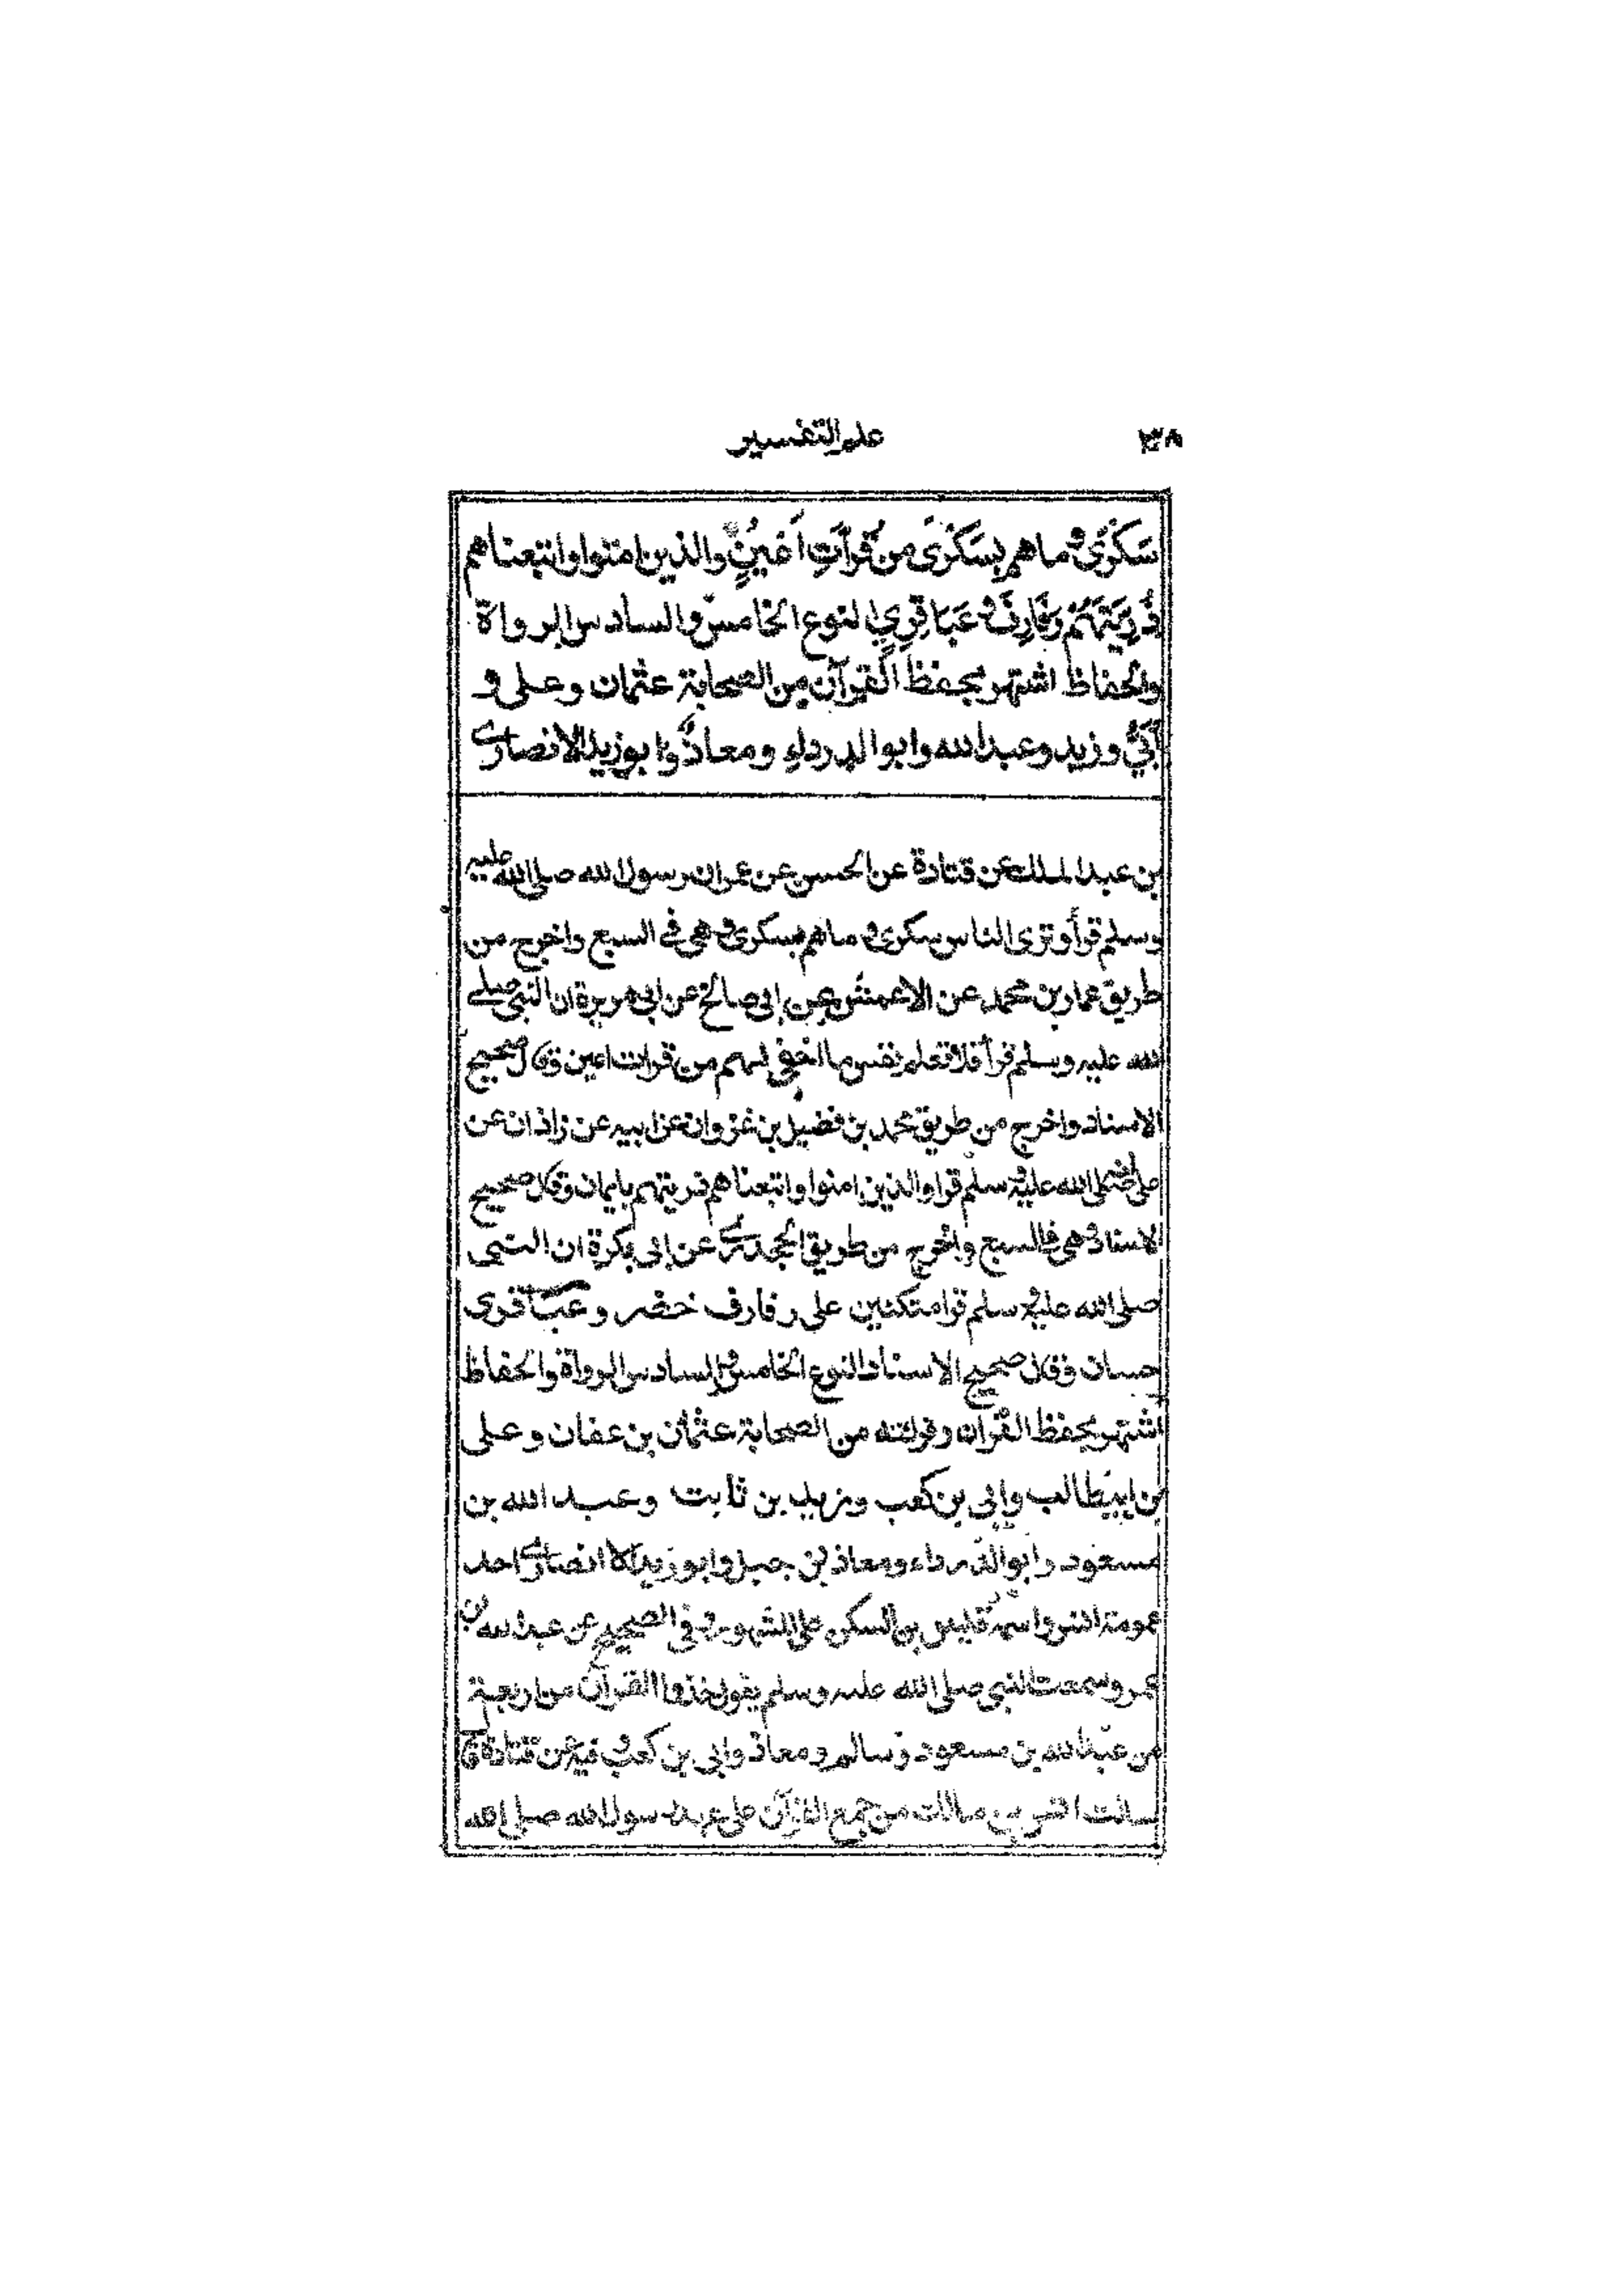 ٢٣٨ علم التفسير
سَكْرٰى وما هم بسَكْرٰى من قُرَّاتِ اَعْيُنٍ والذين امنوا واتبعناهم
ذُرِّيَّتَهُم رَفَارِفَ وعَبَاقِرِيِّ النوع الخامس والسادس الرواة
والحفاظ اشتهر بحفظ القرآن من الصحابة عثمان وعلى و
اُبَيٌّ وزيد وعبد الله وابو الدرداء ومعاذ وابو زيد الانصارى
بن عبد الملك عن قتادة عن الحسن عن عمران رسول الله صلى الله عليه
وسلم قرأ وترى الناس سكرى وما هم بسكرى وهى فى السبع واخرج من
طريق عمار بن محمد عن الاعمش عن ابى صالح عن ابى هريرة ان النبى صلى
الله عليه وسلم قرأ فلا تعلم نفس ما اخفى لهم من قرات اعين وقال صحيح
الاسناد واخرج من طريق محمد بن فضيل بن غزوان عن ابيه عن زاذان عن
على صلى الله عليه وسلم قرا والذين امنوا واتبعناهم ذريتهم بايمان وقال صحيح
الاسناد وهى فى السبع واخرج من طريق الجحدرى عن ابى بكرة ان النبى
صلى الله عليه وسلم قرا متكئين على رفارف خضر وعباقرى
حسان وقال صحيح الاسناد النوع الخامس والسادس الرواة والحفاظ
اشتهر بحفظ القران وقرائته من الصحابة عثمان بن عفان وعلى
بن ابيطالب وابى بن كعب وزيد بن ثابت وعبد الله بن
مسعود وابو الدرداء ومعاذ بن جبل وابو زيد الانصارى احد
عمومة انس واسمه قيس بن السكن على المشهور فى الصحيح عن عبد الله بن
عمرو سمعت النبى صلى الله عليه وسلم يقول خذوا القرآن من اربعة
من عبد الله بن مسعود وسالم ومعاذ وابى بن كعب وفيه عن قتادة قال
سالت انس بن مالك من جمع القرآن على عهد رسول الله صلى الله